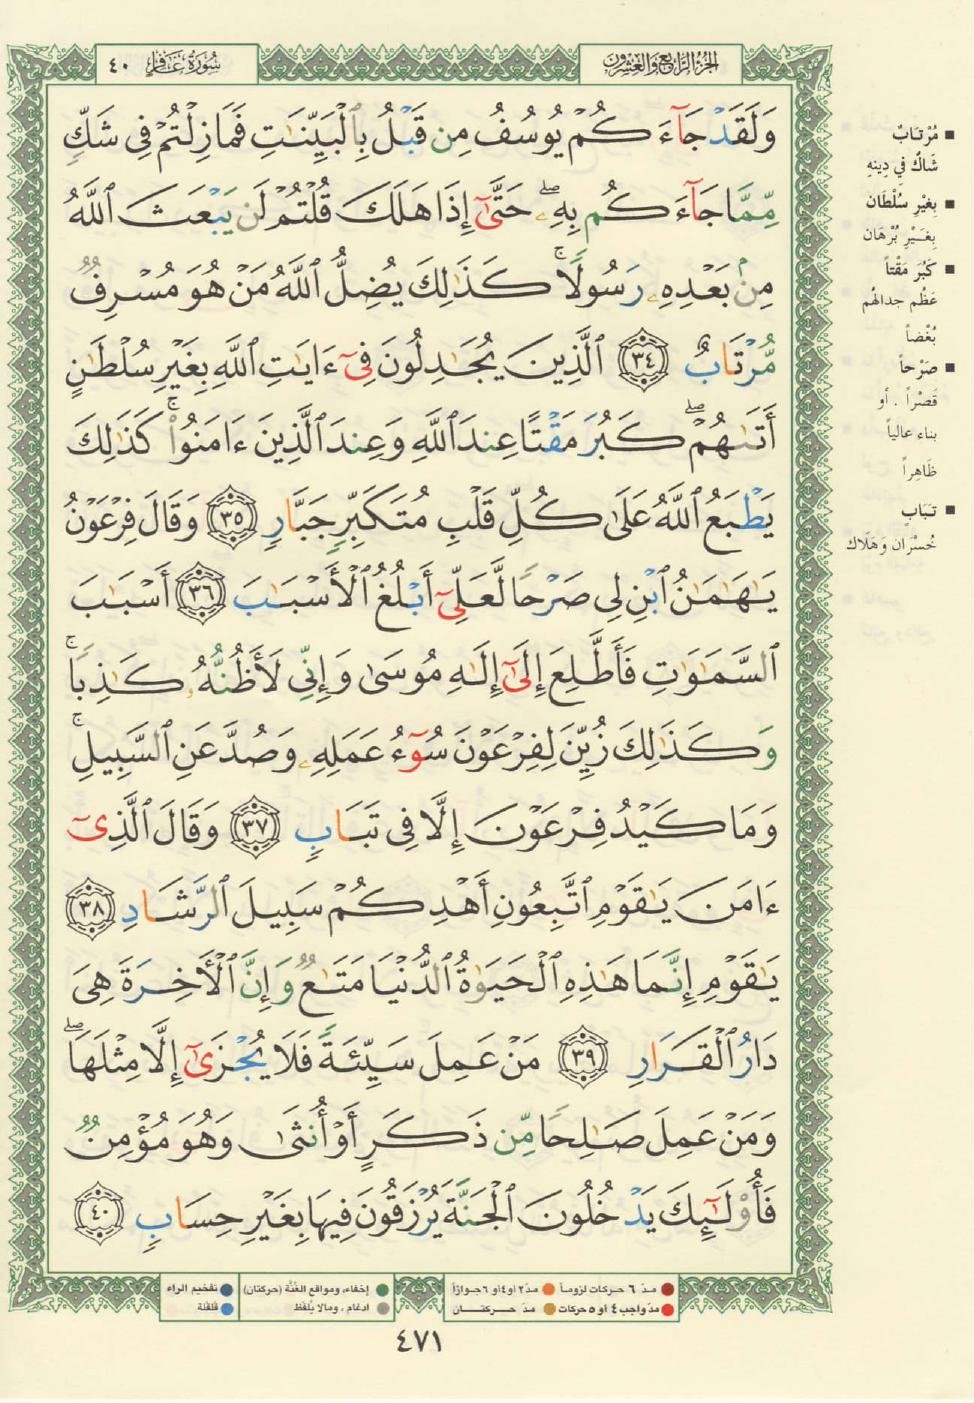 الجزء الرابع والعشرون
سورة غافر ٤٠
وَلَقَدْ جَآءَكُمْ يُوسُفُ مِن قَبْلُ بِٱلْبَيِّنَٰتِ فَمَازِلْتُمْ فِى شَكٍّ
مِّمَّا جَآءَكُم بِهِۦ ۖ حَتَّىٰٓ إِذَا هَلَكَ قُلْتُمْ لَن يَبْعَثَ ٱللَّهُ
مِنۢ بَعْدِهِۦ رَسُولًا ۚ كَذَٰلِكَ يُضِلُّ ٱللَّهُ مَنْ هُوَ مُسْرِفٌ
مُّرْتَابٌ ٣٤ ٱلَّذِينَ يُجَٰدِلُونَ فِىٓ ءَايَٰتِ ٱللَّهِ بِغَيْرِ سُلْطَٰنٍ
أَتَىٰهُمْ ۖ كَبُرَ مَقْتًا عِندَ ٱللَّهِ وَعِندَ ٱلَّذِينَ ءَامَنُوا۟ ۚ كَذَٰلِكَ
يَطْبَعُ ٱللَّهُ عَلَىٰ كُلِّ قَلْبِ مُتَكَبِّرٍ جَبَّارٍ ٣٥ وَقَالَ فِرْعَوْنُ
يَٰهَٰمَٰنُ ٱبْنِ لِى صَرْحًا لَّعَلِّىٓ أَبْلُغُ ٱلْأَسْبَٰبَ ٣٦ أَسْبَٰبَ
ٱلسَّمَٰوَٰتِ فَأَطَّلِعَ إِلَىٰٓ إِلَٰهِ مُوسَىٰ وَإِنِّى لَأَظُنُّهُۥ كَٰذِبًا ۚ
وَكَذَٰلِكَ زُيِّنَ لِفِرْعَوْنَ سُوٓءُ عَمَلِهِۦ وَصُدَّ عَنِ ٱلسَّبِيلِ ۚ
وَمَا كَيْدُ فِرْعَوْنَ إِلَّا فِى تَبَابٍ ٣٧ وَقَالَ ٱلَّذِىٓ
ءَامَنَ يَٰقَوْمِ ٱتَّبِعُونِ أَهْدِكُمْ سَبِيلَ ٱلرَّشَادِ ٣٨
يَٰقَوْمِ إِنَّمَا هَٰذِهِ ٱلْحَيَوٰةُ ٱلدُّنْيَا مَتَٰعٌ وَإِنَّ ٱلْأَخِرَةَ هِىَ
دَارُ ٱلْقَرَارِ ٣٩ مَنْ عَمِلَ سَيِّئَةً فَلَا يُجْزَىٰٓ إِلَّا مِثْلَهَا ۖ
وَمَنْ عَمِلَ صَٰلِحًا مِّن ذَكَرٍ أَوْ أُنثَىٰ وَهُوَ مُؤْمِنٌ
فَأُو۟لَٰٓئِكَ يَدْخُلُونَ ٱلْجَنَّةَ يُرْزَقُونَ فِيهَا بِغَيْرِ حِسَابٍ ٤٠
■ مُرْتابٌ
شَاكٌ في دِينِهِ
■ بغيْرِ سُلْطَان
بِغَيْرِ بُرْهَان
■ كَبُرَ مَقْتاً
عَظُم جدالهُم
بُغْضاً
■ صَرْحاً
قَصْراً . أو
بناء عالياً
ظَاهِراً
■ تَبَابٍ
خُسْرَان وَهَلَاك
مدّ ٦ حركات لزوماً مدّ ٢ او ٤ او ٦ جوازاً
مدّ واجب ٤ او ٥ حركات مدّ حركتان
إخفاء، ومواقع الغُنَّة (حركتان) تفخيم الراء
ادغام ، ومالا يُلفَظ قلقلة
٤٧١